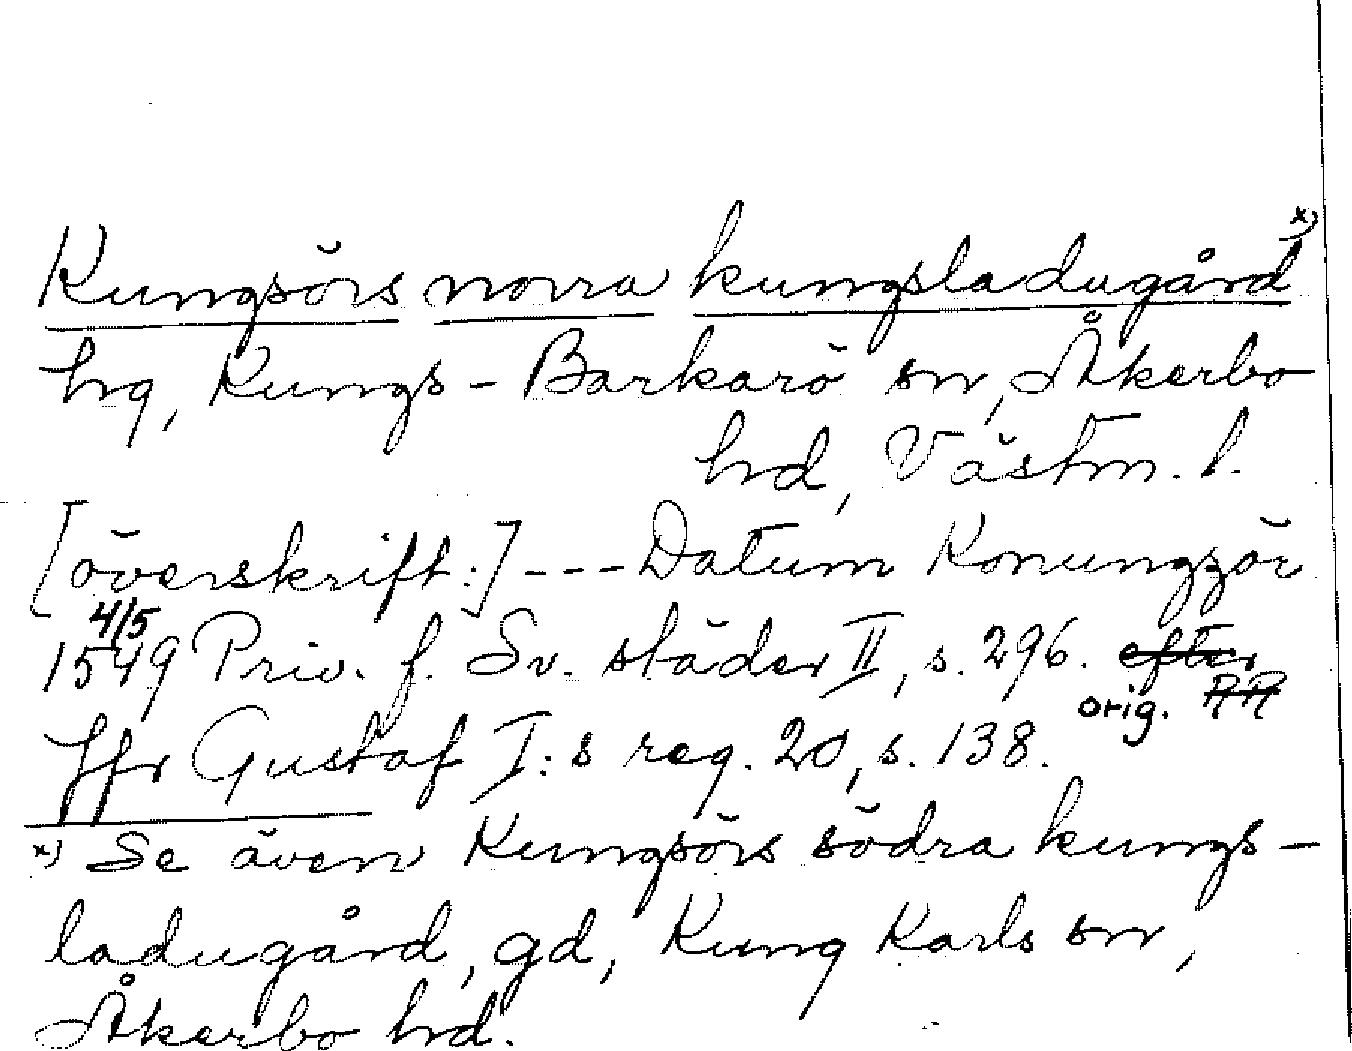 Kungsörs norra kungsladugård x)
hg, Kungs-Barkarö sn, Åkerbo
hd, Västm. l.
[överskrift:] --- Datum Konungzör
4/5
1549 Priv. f. Sv. städer II, s. 296. efter
orig. RR
Jfr Gustaf I:s reg. 20, s. 138.
x) Se även Kungsörs södra kungs-
ladugård, gd, Kung Karls sn,
Åkerbo hd.